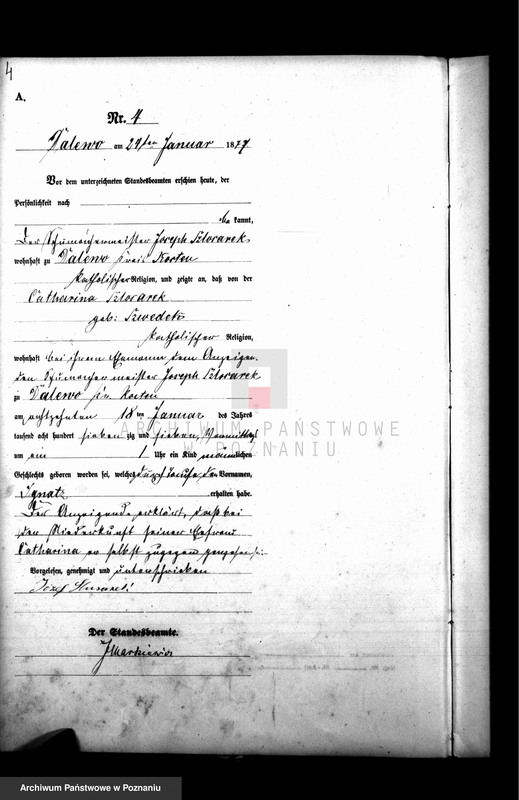 4
A.
Nr. 4
Dalewo am 24ten Januar 1877
Vor dem unterzeichneten Standesbeamten erschien heute, der
Persönlichkeit nach
be kannt,
Der Schumachermeister Joseph
wohnhaft zu Dalewo Kreis Kosten
katholischer Religion, und zeigte an, daß von der
Catharina
geb:
katholischer Religion,
wohnhaft bei ihrem Ehemann dem Anzeigen
den Schumachermeister Joseph
zu Dalewo Kr. Kosten
am achtzehnten 18 ten Januar des Jahres
tausend acht hundert sieben zig und sieben, Vormittags
um ein 1 Uhr ein Kind männlichen
Geschlechts geboren worden sei, welches durch Taufe den Vornamen,
Ignatz erhalten habe.
Der Anzeigende erklärt, daß bei
der Niederkunft seiner Ehefrau
Catharina er selbst zugegen gewesen sei
Vorgelesen, genehmigt und unterschrieben
Józef
Der Standesbeamte.
JMarkiewicz
ARCHIWUM PAŃSTWOWE
W POZNANIU
Archiwum Państwowe w Poznaniu